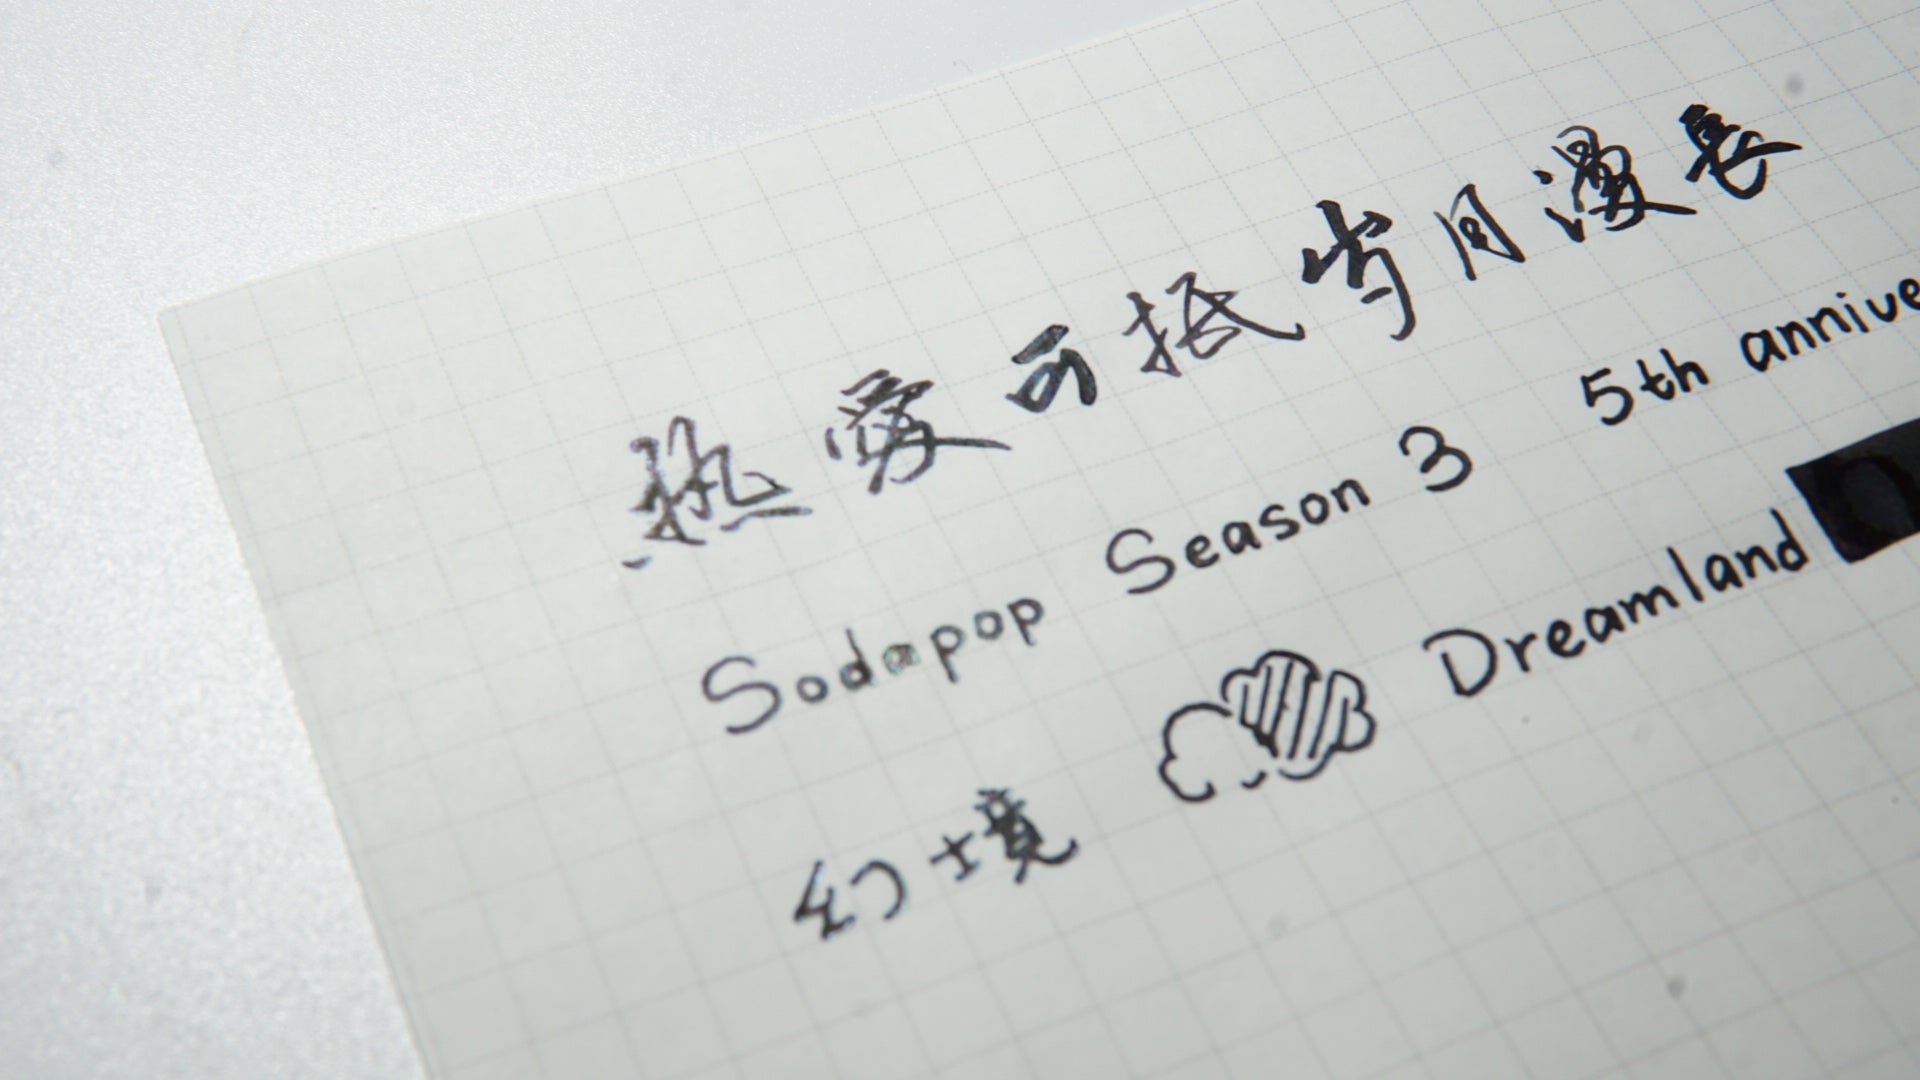 热爱可抵岁月漫长
Sodapop Season 3 5th annive
幻境 Dreamland